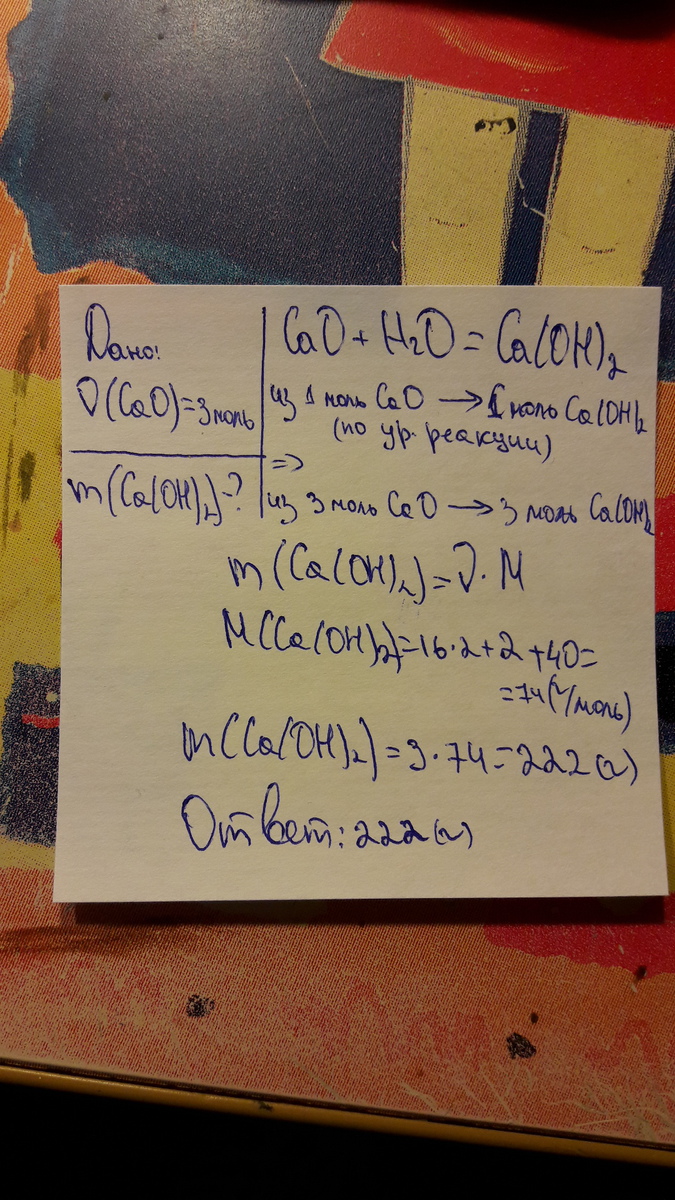 Дано:
CaO + H₂O = Ca(OH)₂
ν(CaO)=3моль
из 1 моль CaO → 1 моль Ca(OH)₂
(по ур. реакции)
=>
m(Ca(OH)₂)-?
из 3 моль CaO → 3 моль Ca(OH)₂
m(Ca(OH)₂)=ν·M
M(Ca(OH)₂)=16·2+2+40=
=74(г/моль)
m(Ca(OH)₂)=3·74=222(г)
Ответ: 222(г)